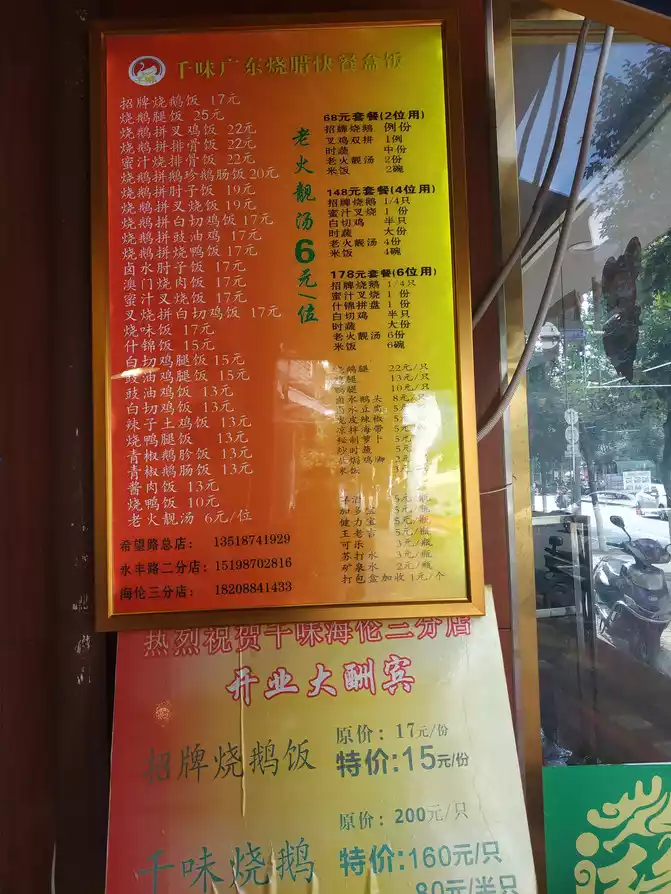 千味广东烧腊快餐盒饭
招牌烧鹅饭 17元
烧鹅腿饭 25元
烧鹅拼叉鸡饭 22元
烧鹅拼排骨饭 22元
蜜汁烧排骨饭 22元
烧鹅拼鹅珍鹅肠饭20元
烧鹅拼肘子饭 19元
烧鹅拼叉烧饭 19元
烧鹅拼白切鸡饭 17元
烧鹅拼豉油鸡 17元
烧鹅拼烧鸭饭 17元
卤水肘子饭 17元
澳门烧肉饭 17元
蜜汁叉烧饭 17元
叉烧拼白切鸡饭 17元
烧味饭 17元
什锦饭 15元
白切鸡腿饭15元
豉油鸡腿饭 15元
豉油鸡饭 13元
白切鸡饭 13元
辣子土鸡饭 13元
烧鸭腿饭 13元
青椒鹅胗饭 13元
青椒鹅肠饭 13元
酱肉饭 13元
烧鸭饭 10元
老火靓汤 6元/位
老火靓汤6元/位
68元套餐(2位用)
招牌烧鹅 例份
叉鸡双拼 1例
时蔬 中份
老火靓汤 2份
米饭 2碗
148元套餐(4位用)
招牌烧鹅 1/4只
蜜汁叉烧 1 份
白切鸡 半只
时蔬 大份
老火靓汤 4份
米饭 4碗
178元套餐(6位用)
招牌烧鹅 1/4只
蜜汁叉烧 1 份
什锦拼盘 1 份
白切鸡 半只
时蔬 大份
老火靓汤 6份
米饭 6碗
烧鹅腿 22元/只
鸡腿 13元/只
鸭腿 10元/只
卤水鸭头 8元/只
卤水豆腐 5元
虎皮辣椒 5元
凉拌海带 5元
秘制萝卜 5元
炒时蔬 5元
鸡脚 2元
米饭
啤酒 5元/瓶
加多宝 5元/瓶
健力宝 5元/瓶
王老吉 5元/瓶
可乐 3元/瓶
苏打水 3元/瓶
矿泉水 2元/瓶
打包盒加收1元/个
希望路总店: 13518741929
永丰路二分店:15198702816
海伦三分店: 18208841433
热烈祝贺千味海伦三分店
开业大酬宾
招牌烧鹅饭
原价: 17元/份
特价:15元/份
千味烧鹅
原价: 200元/只
特价:160元/只
80元/半只